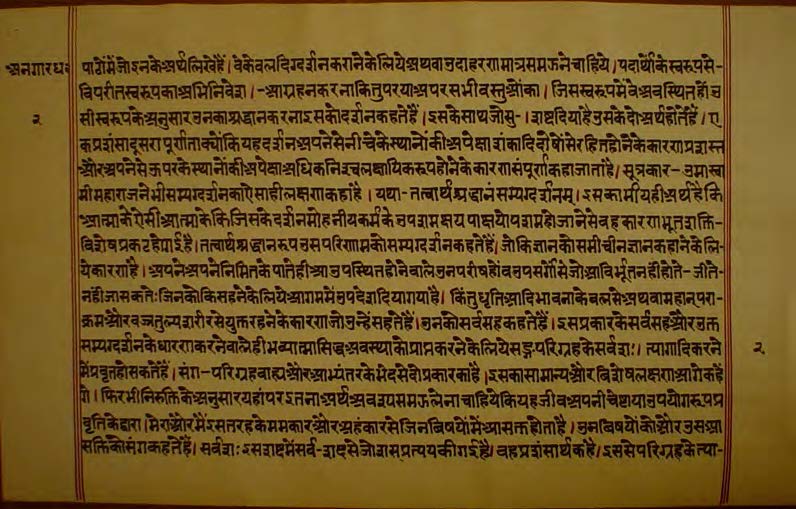 अनगारध॰
पाठोंमें जो ऽनके अर्थ लिखे हैं। वे केवल दिग्दर्शन कराने केलिये अथवा उदाहरण मात्र समझने चाहिये। पदार्थों के स्वरूप से-
विपरीत स्वरूप का अभिनिवेश। -आग्रह न करना किंतु पर या अपर सभी वस्तुओंका। जिस स्वरूप में वे अवस्थित हैं उ
२
सी स्वरूप के अनुसार उनका श्रद्धान करना ऽसको दर्शन कहते हैं। ऽसके साथ जो सु-। शब्द दिया है उसके दो अर्थ होते हैं। ए
क प्रशंसा दूसरा पूर्णता क्योंकि यह दर्शन अपने से नीचे के स्थानों की अपेक्षा शंकादि दोषों से रहित होने के कारण प्रशस्त
और अपने से ऊपर के स्थानों की अपेक्षा अधिक निश्चल क्षायिक रूप होने के कारण संपूर्ण कहा जाता है। सूत्रकार- उमास्वा
मी महाराज ने भी सम्यग्दर्शन का ऐसा ही लक्षण कहा है। यथा- तत्वार्थश्रद्धानं सम्यग्दर्शनम्। ऽसका भी यही अर्थ है कि
आत्मा के ऐसी आत्मा के कि जिसके दर्शनमोहनीय कर्म के उपशम क्षय या क्षयोपशम हो जाने से वह कारणभूत शक्ति-
विशेष प्रकट हो गई है। तत्वार्थश्रद्धान रूप उस परिणाम को सम्यग्दर्शन कहते हैं। जो कि ज्ञान को समीचीन ज्ञान कहाने के लि-
ये कारण है। अपने अपने निमित्त के पाते ही आ उपस्थित होने वाले उन परीषहों व उपसर्गों से जो आविर्भूत नहीं होते- जीते-
नहीं जा सकते। जिनको कि सहने के लिये आगम में उपदेश दिया गया है। किंतु धृति आदि भावना के बल से अथवा महान परा-
क्रम और वज्रतुल्य शरीर से युक्त रहने के कारण जो उन्हें सहते हैं। उनको सर्वसह कहते हैं। ऽस प्रकार के सर्वंसह और उक्त
सम्यग्दर्शन के धारण करने वाले ही भव्यात्मा सिद्ध अवस्था को प्राप्त करने के लिये सङ्ग परिग्रह के सर्वशः। त्यागादि करने
२
में प्रवृत्त हो सकते हैं। संग- परिग्रह बाह्य और आभ्यंतर के भेद से दो प्रकार का है। ऽसका सामान्य और विशेष लक्षण आगे कहें
गे। फिर भी निरुक्ति के अनुसार यहां पर ऽतना अर्थ अवश्य समझ लेना चाहिये कि यह जीव अपनी चेष्टा या उपयोग रूप प्र
वृत्ति के द्वारा। मेरा और मैं ऽस तरह के ममकार और अहंकार से जिन विषयों में आसक्त होता है। उन विषयों को और उस आ
सक्ति को संग कहते हैं। सर्वशः ऽस शब्द में सर्व- शब्द से जो शस् प्रत्यय की गई है। वह प्रशंसार्थक है। ऽससे परिग्रह के त्या-